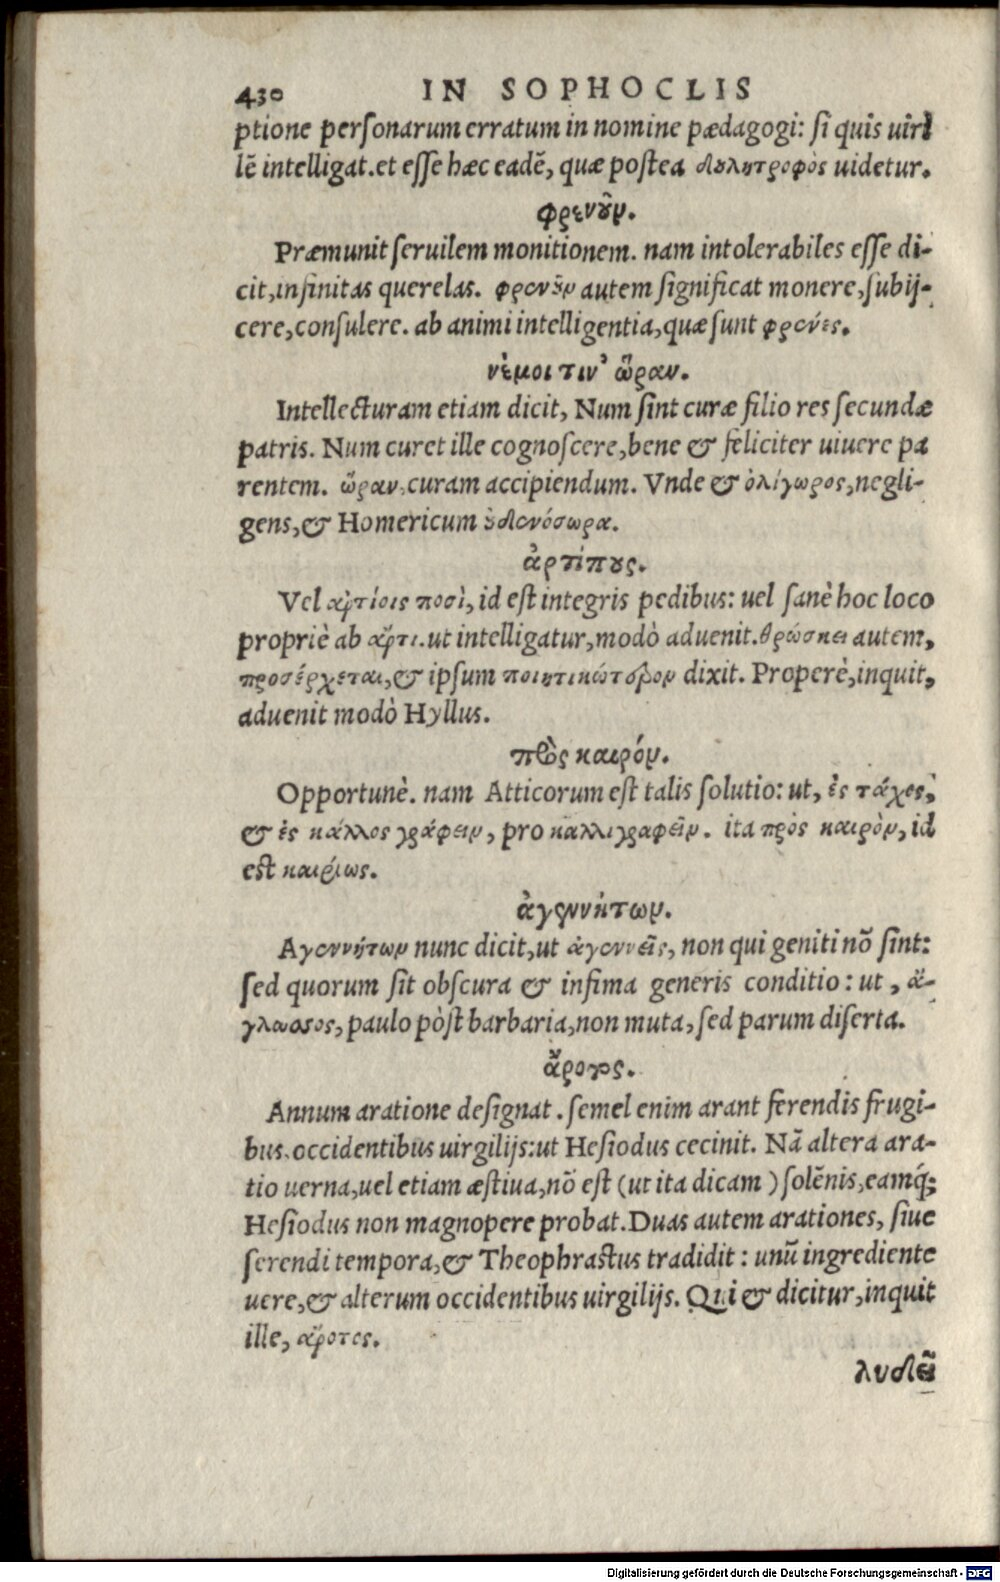 430 IN SOPHOCLIS
ptione personarum erratum in nomine pædagogi: si quis uiri
lē intelligat. et esse hæc eadē, quæ postea δουλητροφὸς uidetur.
φρενοῦν.
Præmunit seruilem monitionem. nam intolerabiles esse di-
cit, infinitas querelas. φρενοῦν autem significat monere, subij-
cere, consulere. ab animi intelligentia, quæ sunt φρένες.
νέμοι τιν' ὥραν.
Intellecturam etiam dicit, Num sint curæ filio res secundæ
patris. Num curet ille cognoscere, bene & feliciter uiuere pa
rentem. ὥραν, curam accipiendum. Vnde & ὀλίγωρος, negli-
gens, & Homericum οὐδενόσωρα.
ἀρτίπους.
Vel ἀρτίοις ποσὶ, id est integris pedibus: uel sanè hoc loco
propriè ab ἄρτι. ut intelligatur, modò aduenit. θρώσκει autem,
προσέρχεται, & ipsum ποιητικώτερον dixit. Properè, inquit,
aduenit modò Hyllus.
πρὸς καιρόν.
Opportunè. nam Atticorum est talis solutio: ut, ἐς τάχος,
& ἐς κάλλος γράφειν, pro καλλιγραφεῖν. ita πρὸς καιρὸν, id
est καιρίως.
ἀγεννήτων.
Αγεννήτων nunc dicit, ut ἀγεννεῖς, non qui geniti nō sint:
sed quorum sit obscura & infima generis conditio: ut, ἄ-
γλωσσος, paulo pòst barbaria, non muta, sed parum diserta.
ἄροτος.
Annum aratione designat. semel enim arant ferendis frugi-
bus, occidentibus uirgilijs: ut Hesiodus cecinit. Nā altera ara-
tio uerna, uel etiam æstiua, nō est (ut ita dicam) solēnis, eamq́;
Hesiodus non magnopere probat. Duas autem arationes, siue
serendi tempora, & Theophrastus tradidit: unū ingrediente
uere, & alterum occidentibus uirgilijs. Qui & dicitur, inquit
ille, ἄροτος.
λυδεῖ
Digitalisierung gefördert durch die Deutsche Forschungsgemeinschaft - DFG